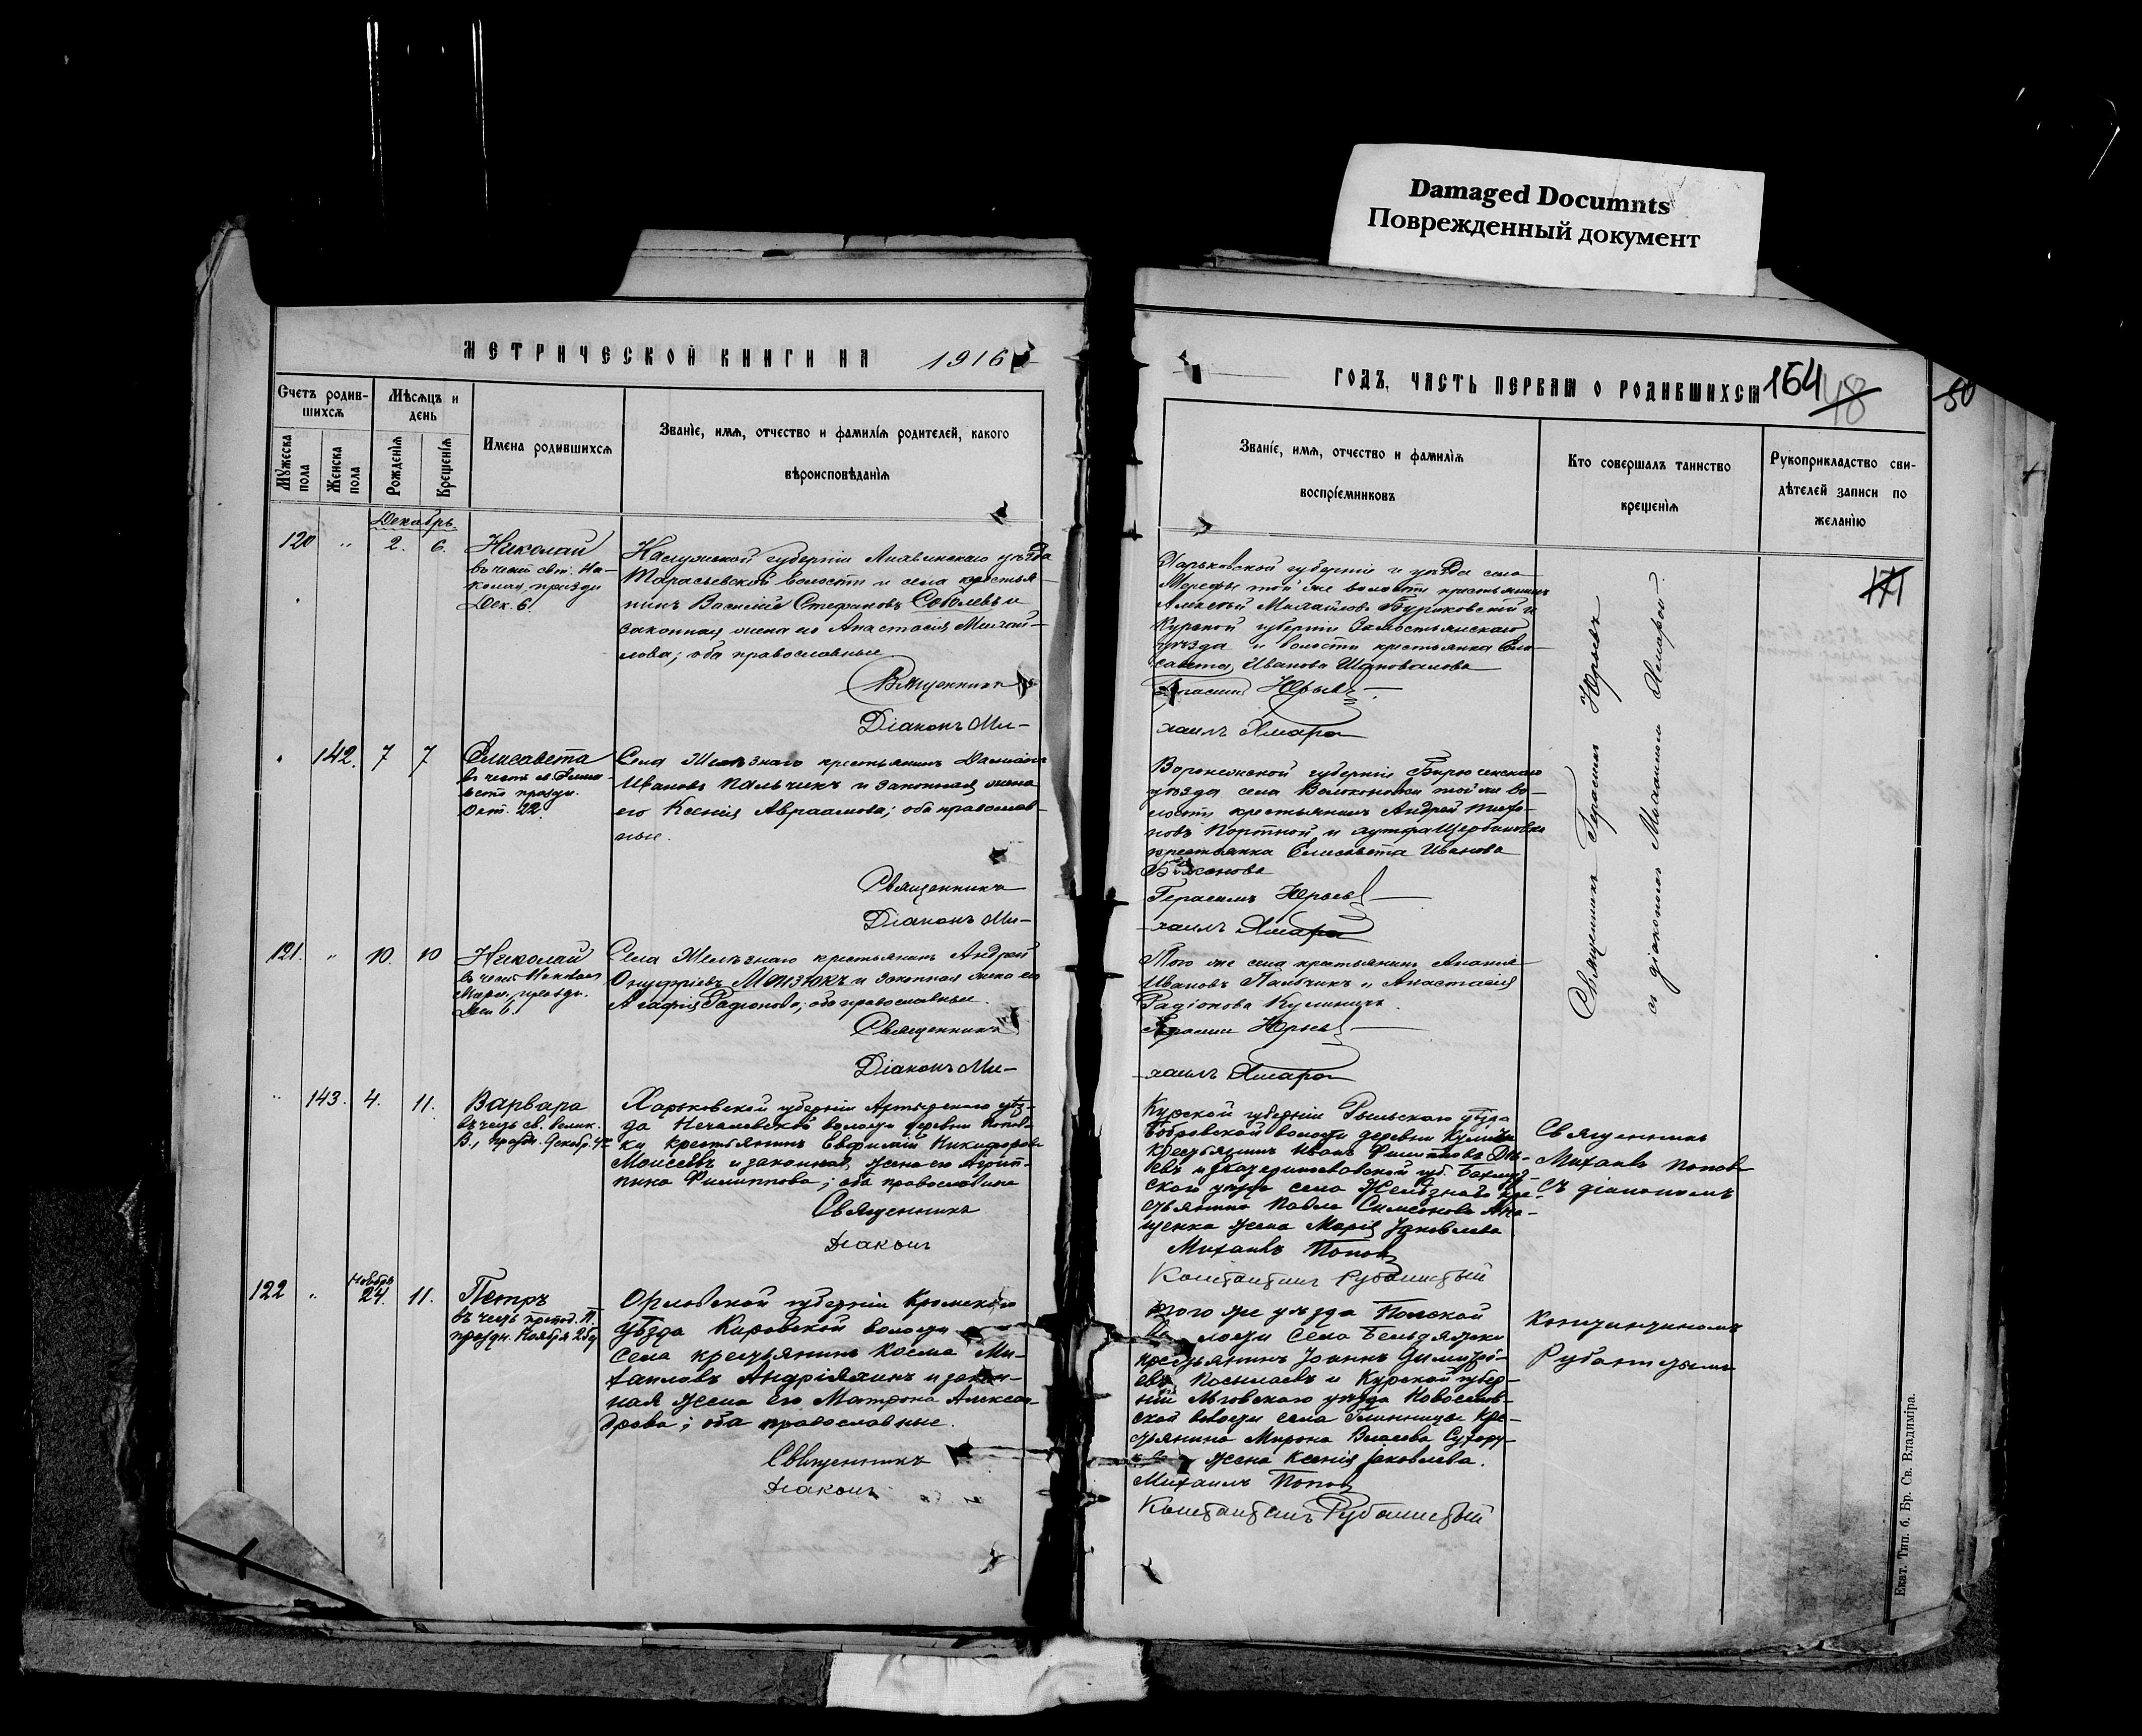 Damaged Documnts
Поврежденный документ
МЕТРИЧЕСКОЙ КНИГИ НА 1916
ГОДЪ, ЧАСТЬ ПЕРВАЯ О РОДИВШИХСЯ
164 48
50
Счетъ родив-
шихся
Мужеска пола
Женска пола
Мѣсяцъ и
день
Рожденія
Крещенія
Имена родившихся
Званіе, имя, отчество и фамилія родителей, какого
вѣроисповѣданія
Званіе, имя, отчество и фамилія
воспріємниковъ
Кто совершалъ таинство
крещенія
Рукоприкладство сви-
дѣтелей записи по
желанію
171
Декабрь.
120 " 2. 6.
Николай
въ честь свт. Ни-
колая, праздн.
Дек. 6.
губерніи уѣзда
волости и села крестья-
нинъ Василій Стефановъ Соболевъ и
законная жена его Анастасія Михай-
лова; оба православные
Священникъ
Діаконъ Ми-
Харьковской губерніи и уѣзда села
Мерефы той же волости крестьянинъ
Алексѣй Михайловъ и
Курской губерніи
уѣзда и волости крестьянка Ели-
савета Иванова Шаповалова
Герасимъ Юрьевъ
хаилъ Хмара
Священникъ Герасимъ Юрьевъ
съ діакономъ Михаиломъ Хмарой.
" 142. 7 7
Елисавета
въ честь
праздн.
Окт. 22.
Села Желѣзнаго крестьянинъ Даміанъ
Ивановъ Пальчикъ и законная жена
его Ксенія Авраамова; оба православ-
ные.
Священникъ
Діаконъ Ми-
Воронежской губерніи Бирюченскаго
уѣзда села Волоконовки той же во-
лости крестьянинъ Андрей
новъ Портной и хутора Щербиновки
крестьянка Елисавета Иванова
Герасимъ Юрьевъ
хаилъ Хмара
121. " 10. 10
Николай
въ честь Николая
праздн.
Дек 6.
Села Желѣзнаго крестьянинъ Андрей
Онуфріевъ Мотзюкъ и законная жена его
Агафія Радіонова; оба православные.
Священникъ
Діаконъ Ми-
Того же села крестьянинъ Ананія
Ивановъ Пальчикъ и Анастасія
Радіонова
Герасимъ Юрьевъ
хаилъ Хмара
" 143. 4. 11.
Варвара
въ честь св. Велик.
В., праздн. Декабр. 4
Харьковской губерніи Ахтырскаго уѣз-
да волости деревни Попов-
ки крестьянинъ Евфимій Никифоровъ
Моисеевъ и законная жена его Агрип-
пина Филиппова; оба православные
Священникъ
Діаконъ
Курской губерніи Рыльскаго уѣзда
Бобровской волости деревни
крестьянинъ Иванъ Филипповъ
и Екатеринославской губ. Бахмут-
скаго уѣзда села Желѣзнаго кре-
стьянина Павла Симеонова
жена Марія Яковлева
Михаилъ Поповъ
Константинъ Рубанистый
Священникъ
Михаилъ Поповъ
съ діакономъ
122 " Ноябрь 24. 11.
Петръ
въ честь препод. П.
праздн. Ноября 25
Орловской губерніи Кромскаго
уѣзда волости
села крестьянинъ Косма Ми-
хаиловъ Андріяхинъ и закон-
ная жена его Матрона Алексан-
дрова; оба православные.
Священникъ
Діаконъ
того же уѣзда
волости села Бельдяжки
крестьянинъ Іоаннъ Димитрі-
евъ и Курской губер-
ніи Льговскаго уѣзда
ской волости села кре-
стьянина Мирона Власова
жена Ксенія Яковлева.
Михаилъ Поповъ
Константинъ Рубанистый
Константиномъ
Рубанистымъ
Екат. Тип. б. Бр. Св. Владиміра.